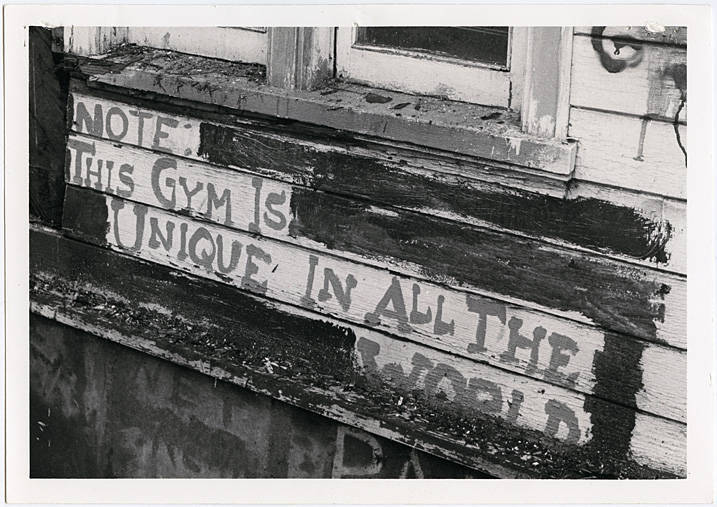 NOTE:
THIS GYM IS
UNIQUE IN ALL THE
WORLD